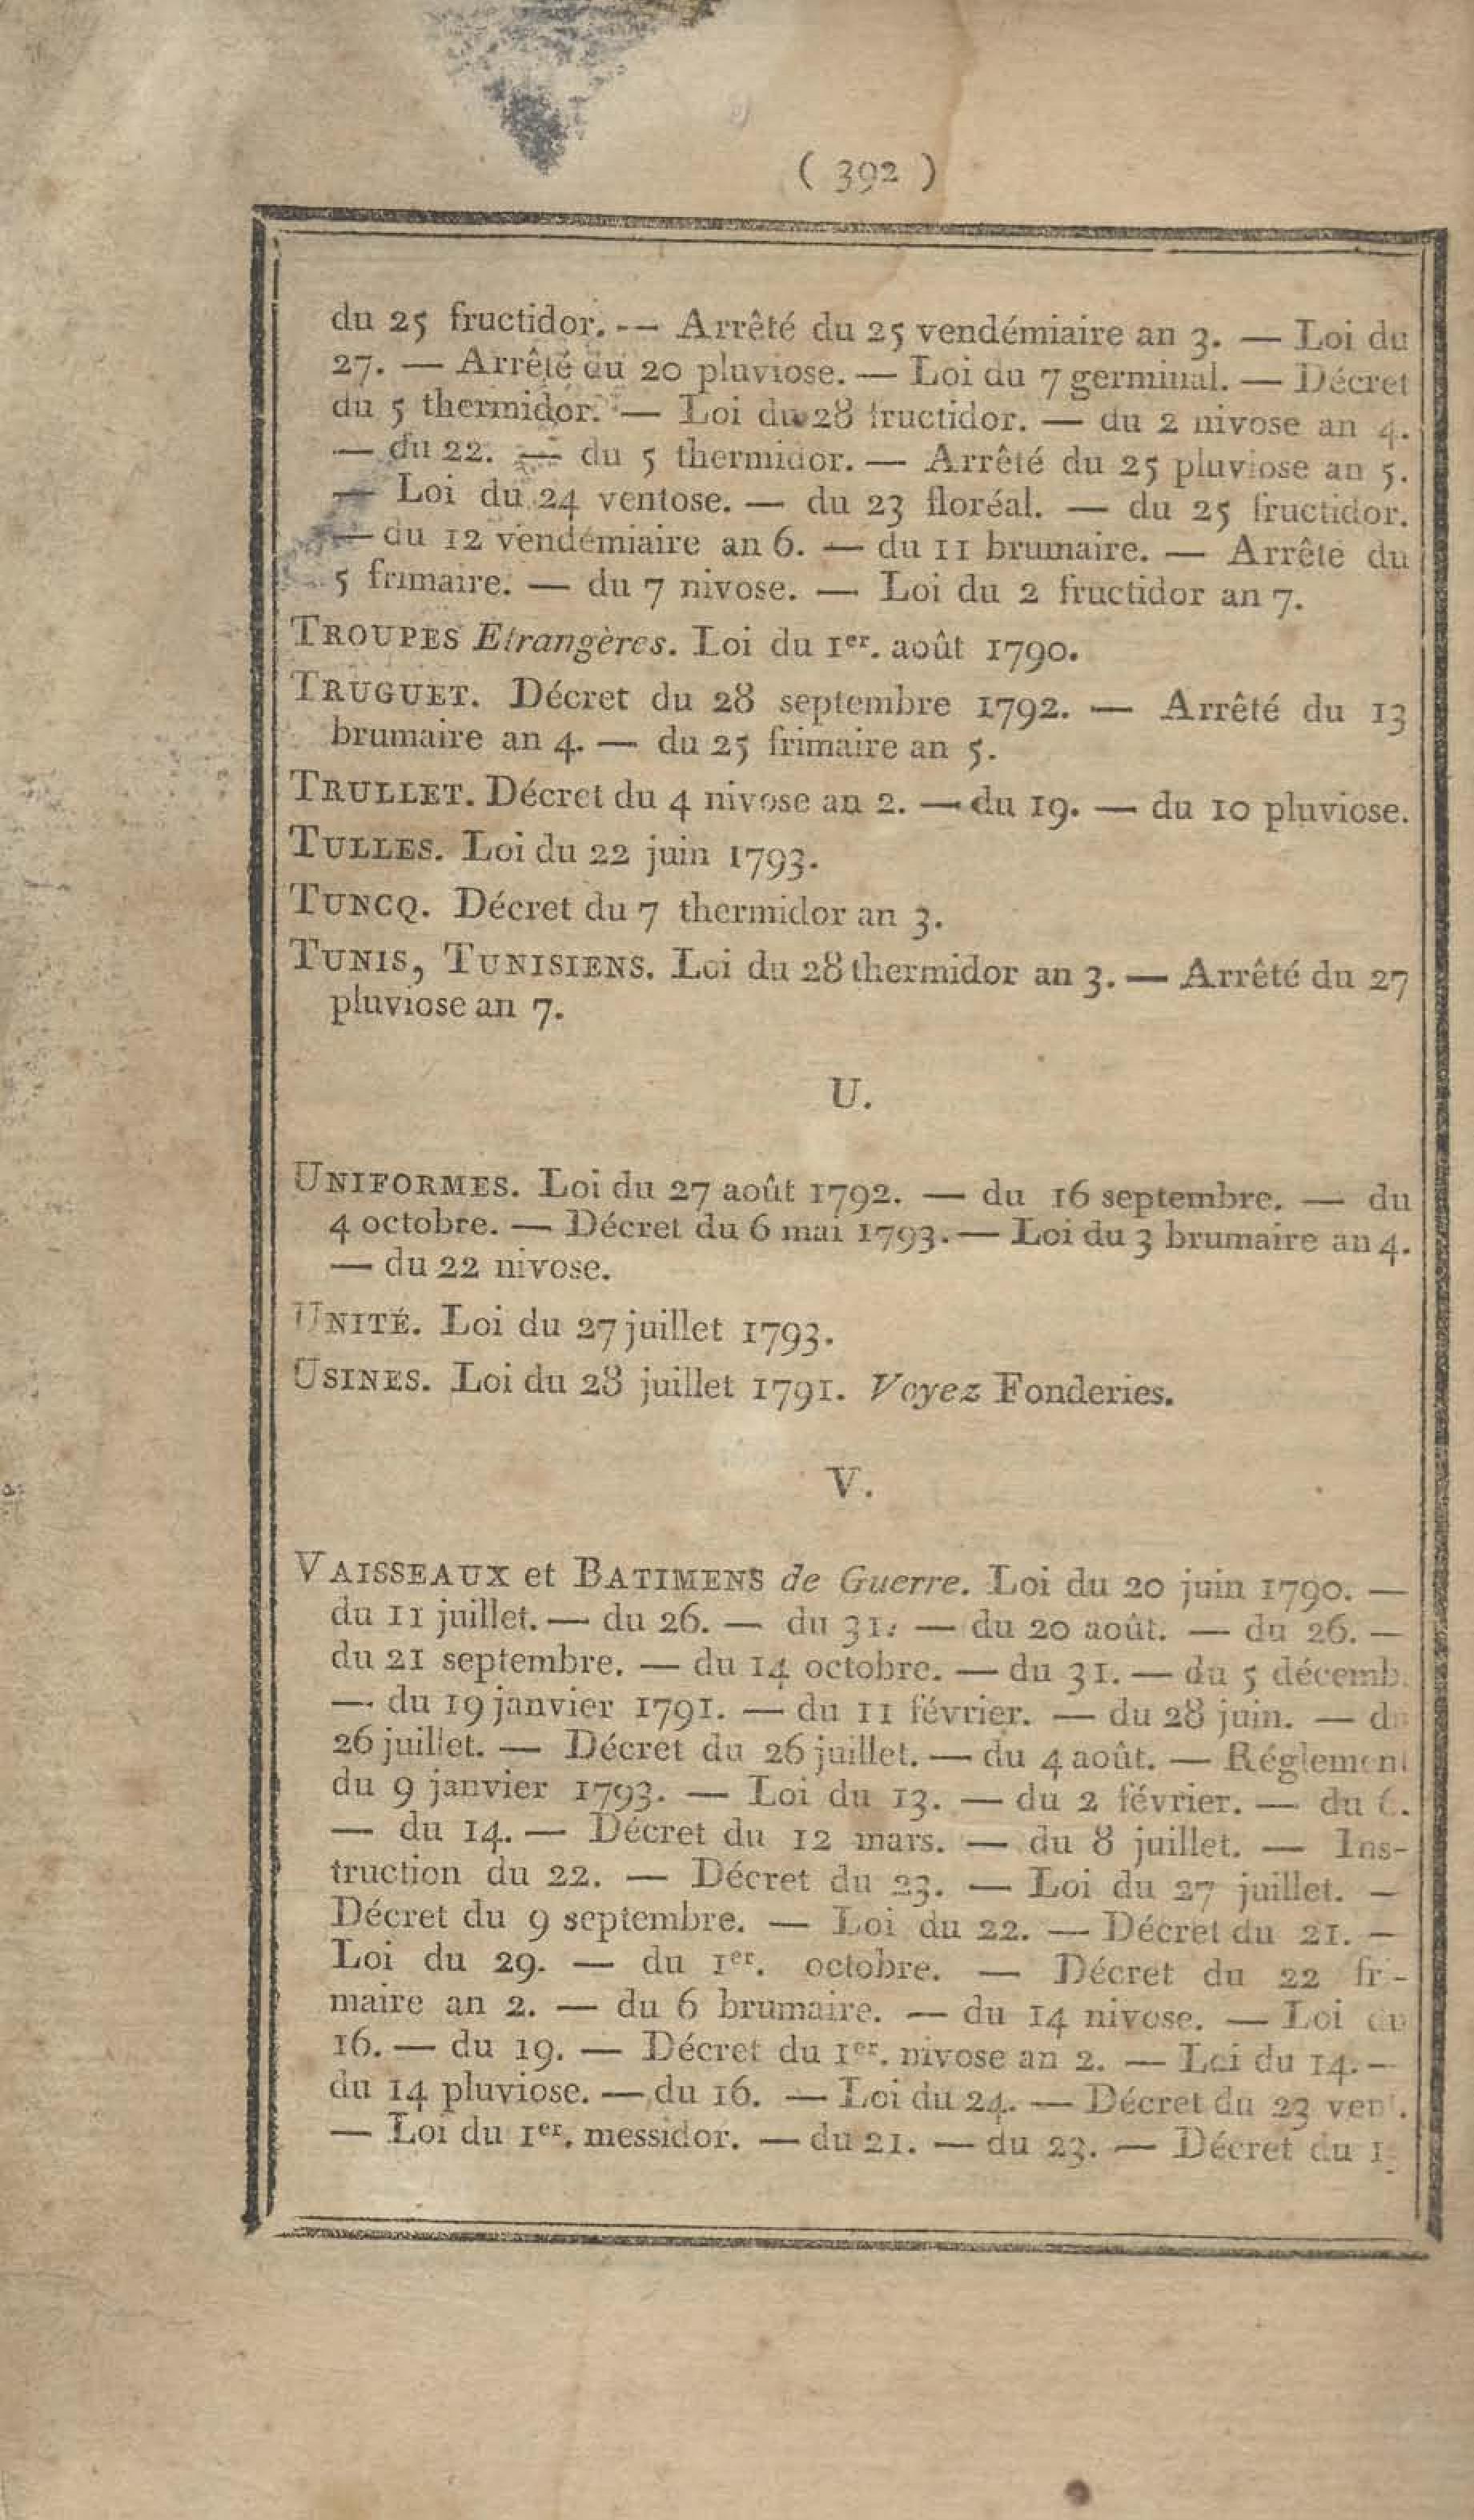 ( 392 )
du 25 fructidor. -- Arrêté du 25 vendémiaire an 3. — Loi du
27. — Arrêté du 20 pluviose. — Loi du 7 germinal. — Décret
du 5 thermidor. — Loi du 28 fructidor. — du 2 nivose an 4.
— du 22. — du 5 thermidor. — Arrêté du 25 pluviose an 5.
— Loi du 24 ventose. — du 23 floréal. — du 25 fructidor.
— du 12 vendémiaire an 6. — du 11 brumaire. — Arrêté du
5 frimaire. — du 7 nivose. — Loi du 2 fructidor an 7.
TROUPES Etrangères. Loi du 1er. août 1790.
TRUGUET. Décret du 28 septembre 1792. — Arrêté du 13
brumaire an 4. — du 25 frimaire an 5.
TRULLET. Décret du 4 nivose an 2. — du 19. — du 10 pluviose.
TULLES. Loi du 22 juin 1793.
TUNCQ. Décret du 7 thermidor an 3.
TUNIS, TUNISIENS. Loi du 28 thermidor an 3. — Arrêté du 27
pluviose an 7.
U.
UNIFORMES. Loi du 27 août 1792. — du 16 septembre. — du
4 octobre. — Décret du 6 mai 1793. — Loi du 3 brumaire an 4.
— du 22 nivose.
UNITÉ. Loi du 27 juillet 1793.
USINES. Loi du 28 juillet 1791. Voyez Fonderies.
V.
VAISSEAUX et BATIMENS de Guerre. Loi du 20 juin 1790. —
du 11 juillet. — du 26. — du 31. — du 20 août. — du 26. —
du 21 septembre. — du 14 octobre. — du 31. — du 5 décemb.
— du 19 janvier 1791. — du 11 février. — du 28 juin. — du
26 juillet. — Décret du 26 juillet. — du 4 août. — Réglement
du 9 janvier 1793. — Loi du 13. — du 2 février. — du 6.
— du 14. — Décret du 12 mars. — du 8 juillet. — Ins-
truction du 22. — Décret du 23. — Loi du 27 juillet. —
Décret du 9 septembre. — Loi du 22. — Décret du 21. —
Loi du 29. — du 1er. octobre. — Décret du 22 fri-
maire an 2. — du 6 brumaire. — du 14 nivose. — Loi du
16. — du 19. — Décret du 1er. nivose an 2. — Loi du 14. —
du 14 pluviose. — du 16. — Loi du 24. — Décret du 23 vent.
— Loi du 1er. messidor. — du 21. — du 23. — Décret du